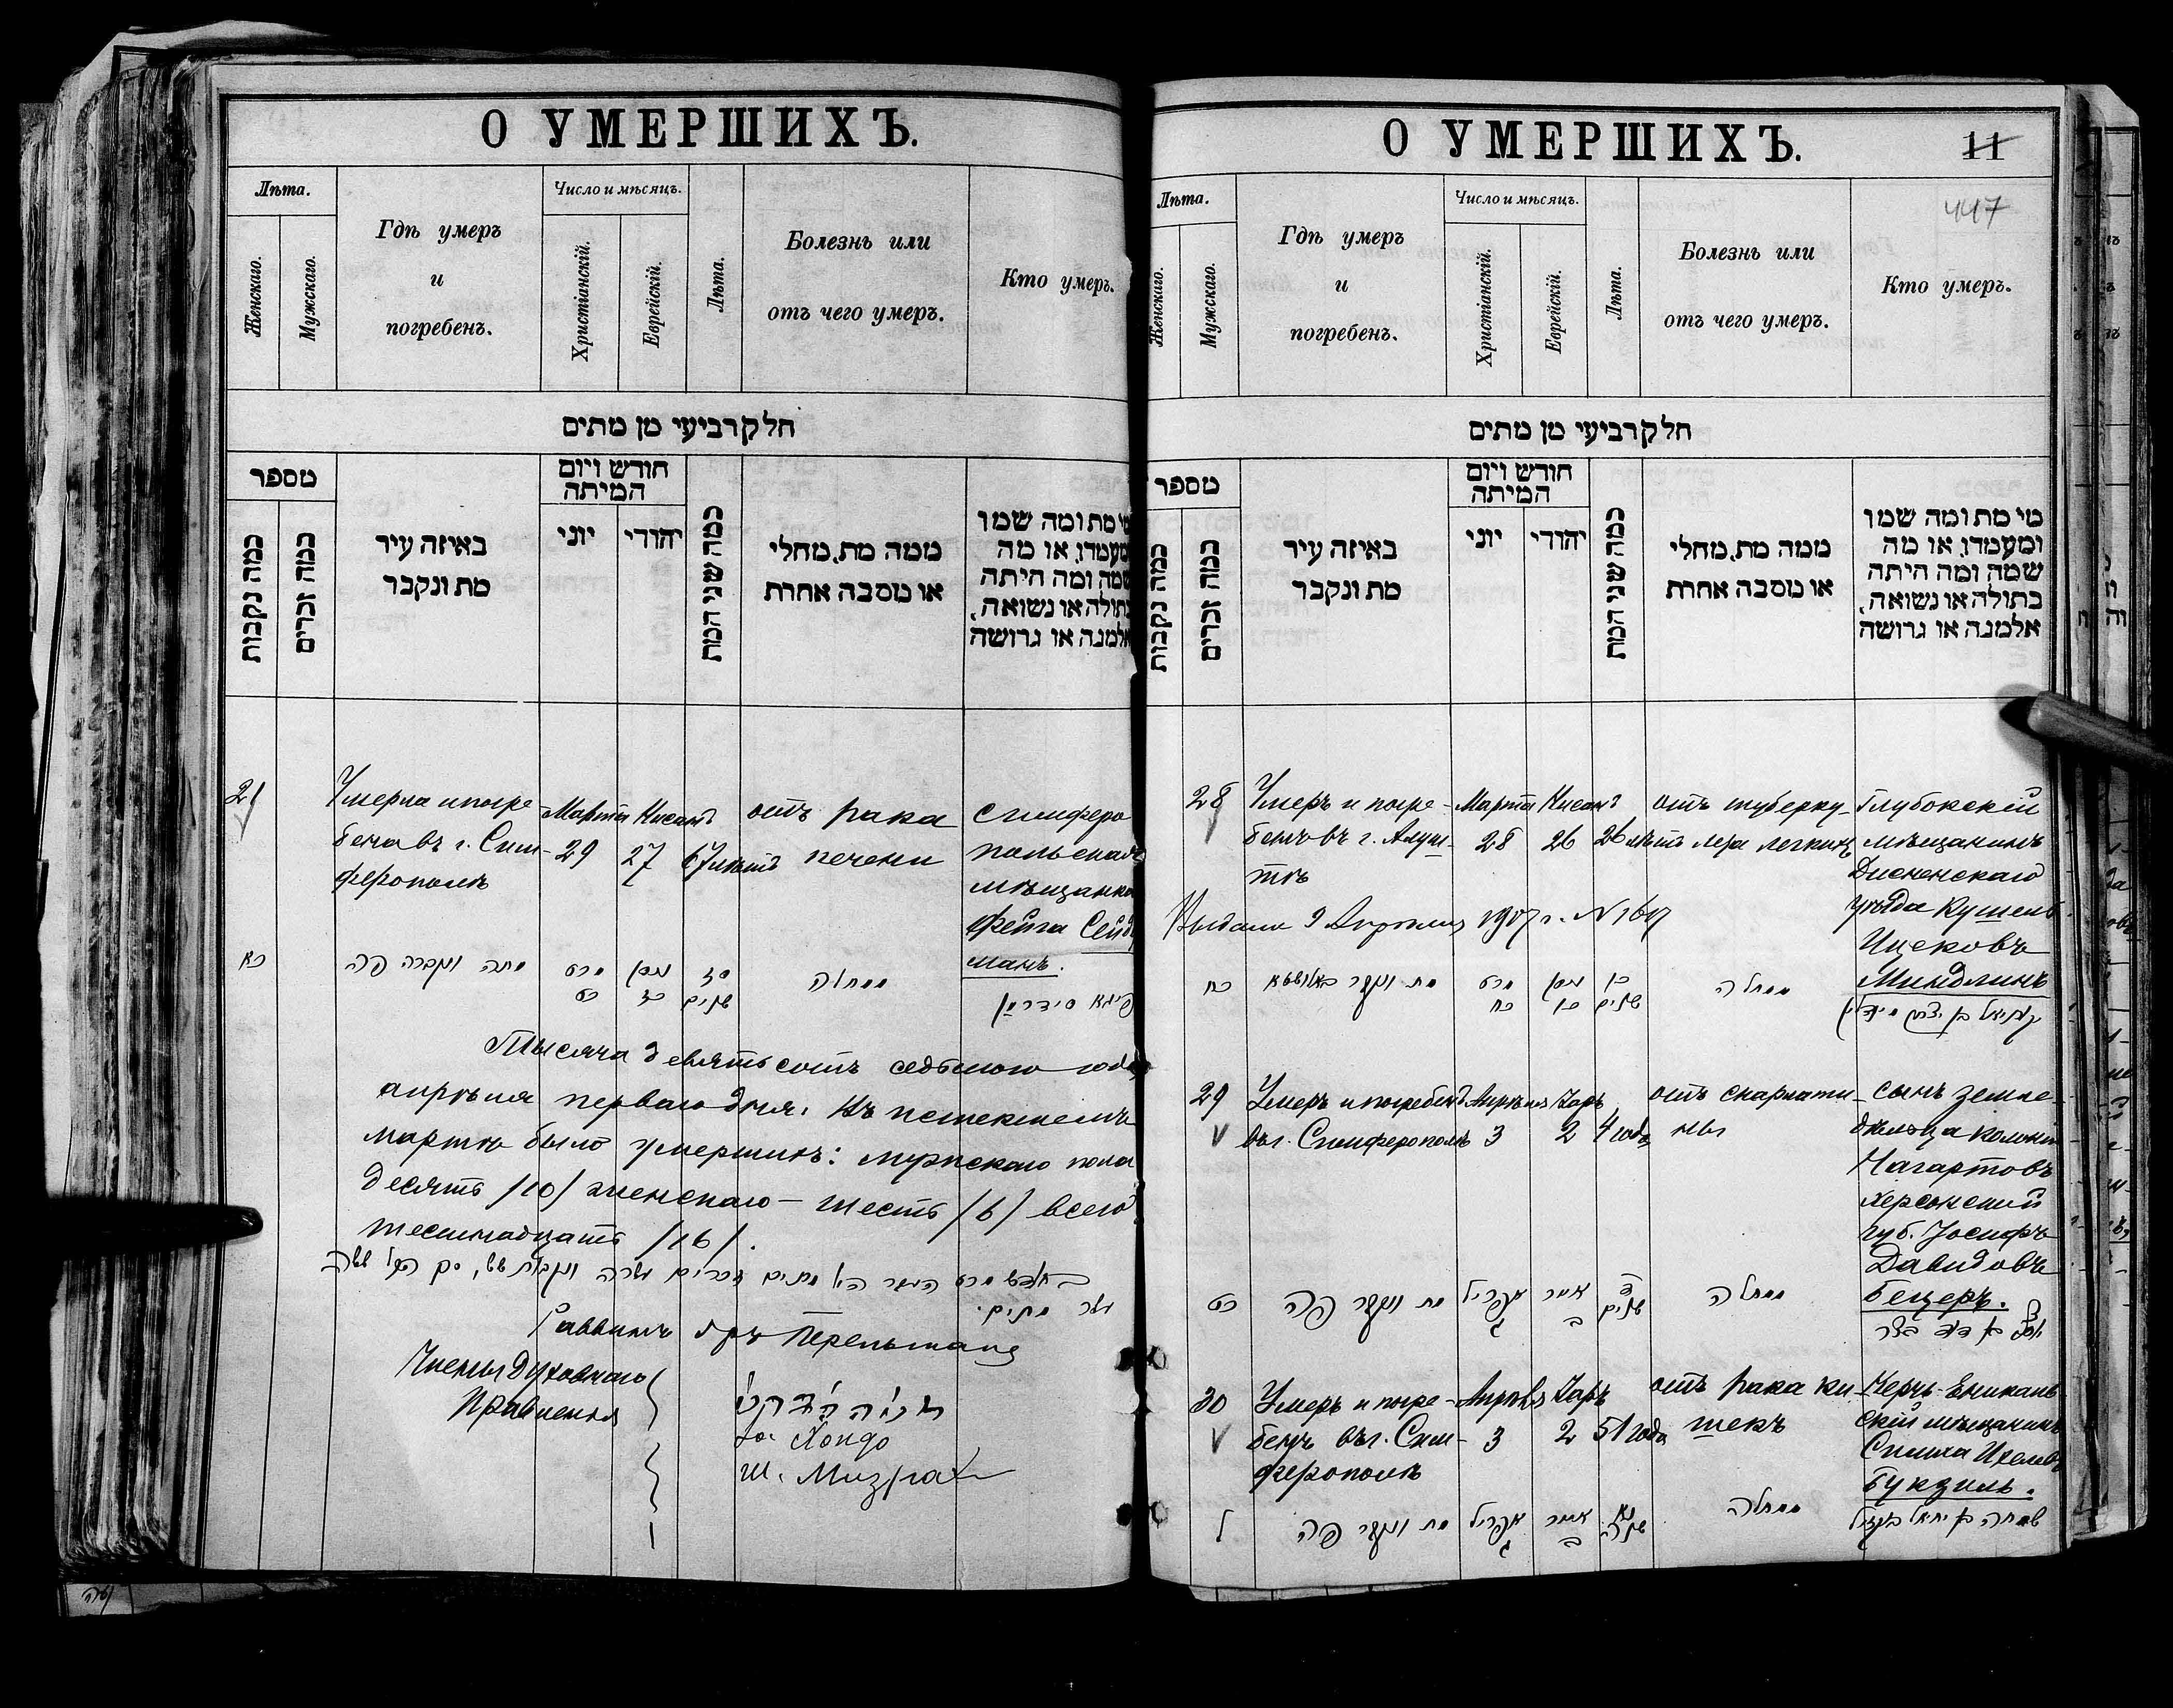 О УМЕРШИХЪ.
Лѣта.
Женскаго.
Мужскаго.
Гдѣ умеръ
и
погребенъ.
Число и мѣсяцъ.
Христіанскій.
Еврейскій.
Лѣта.
Болезнь или
отъ чего умеръ.
Кто умеръ.
חלק רביעי מן מתים
מספר
כמה נקבות
כמה זכרים
באיזה עיר
מת ונקבר
חודש ויום
המיתה
יוני
יהודי
כמה שני המת
ממה מת, מחלי
או מסבה אחרת
מי מת ומה שמו
ומעמדו, או מה
שמה ומה היתה
בתולה או נשואה,
אלמנה או גרושה
21
Умерла и погре-
бена въ г. Сим-
ферополѣ
Марта
29
Нисанъ
27
67 лѣтъ
отъ рака
печени
Симферо
польская
мѣщанка
Фейга Сейд
манъ.
כא
מתה ונקברה פה
מרט
כט
ניסן
כז
סז
שנים
מחלה
פייגא סידמן
Тысяча девятьсотъ седьмого года
апрѣля перваго дня. Въ истекшемъ
мартѣ было умершихъ: мужскаго пола
десять /10/ женскаго — шесть /6/ всего
шестнадцать /16/.
עשר מתים.
Раввинъ др. Перельманъ
Члены Духовнаго
Правленія
Хондо
Ш. Мизрахи
О УМЕРШИХЪ.
11
447
Лѣта.
Женскаго.
Мужскаго.
Гдѣ умеръ
и
погребенъ.
Число и мѣсяцъ.
Христіанскій.
Еврейскій.
Лѣта.
Болезнь или
отъ чего умеръ.
Кто умеръ.
חלק רביעי מן מתים
מספר
כמה נקבות
כמה זכרים
באיזה עיר
מת ונקבר
חודש ויום
המיתה
יוני
יהודי
כמה שני המת
ממה מת, מחלי
או מסבה אחרת
מי מת ומה שמו
ומעמדו, או מה
שמה ומה היתה
בתולה או נשואה,
אלמנה או גרושה
28
Умеръ и погре-
бенъ въ г. Алуш-
тѣ
Марта
28
Нисанъ
26
26 лѣтъ
отъ туберку-
леза легкихъ
Глубокскій
мѣщанинъ
Дисненскаго
уѣзда Кушель
Ицковъ
Миндлинъ
Выдана 9 Апрѣля 1907 г. №
כח
מת ונקבר באלושטא
מרט
כח
ניסן
כו
כו
שנים
מחלה
29
Умеръ и погребенъ
въ г. Симферополѣ
Апрѣля
3
Іаръ
2
4 года
отъ скарлати-
ны
сынъ земле-
дѣльца колоніи
Нагартовъ
Херсонской
губ. Іосифъ
Давидовъ
Бецеръ.
כט
מת ונקבר פה
אפריל
ג
אייר
ב
ד
שנים
מחלה
יוסף בן דוד בצר
30
Умеръ и погре-
бенъ въ г. Сим-
ферополѣ
Апрѣля
3
Іаръ
2
51 года
отъ рака ки-
шекъ
Керчь-Еникаль
скій мѣщанинъ
Симха Ихелевъ
Букзиль.
ל
מת ונקבר פה
אפריל
ג
אייר
ב
נא
שנה
מחלה
שמחה בן יחיאל בוקזיל